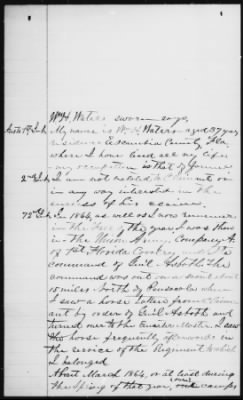 Wm H. Waters sworn says,
My name is Wm H. Waters aged 37 years
residence Escambia County Fla,
where I have lived all my life
my occupation is that of
2nd Int. I am not related to Claimant or
in any way interested in the
success of his claims.
72d Int. In 1864, as well as I can remember
in the year I was then
in the Union Army, Company A.
of 1st Florida Cavalry under the
command of Genl. Asboth. The
command was out on a scout about
15 miles North of Pensacola when
I saw a horse taken from Claim-
ant by order of Genl Asboth and
turned over to the Quarter Master. I saw
the horse frequently afterwards in
the service of the Regiment to which
I belonged.
About March 1864, or at least during
the Spring of that year, our camps